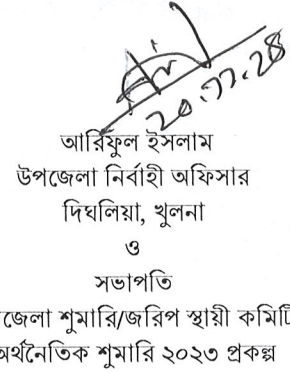 ২০.১১.২৪
আরিফুল ইসলাম
উপজেলা নির্বাহী অফিসার
দিঘলিয়া, খুলনা
ও
সভাপতি
জেলা শুমারি/জরিপ স্থায়ী কমিটি
অর্থনৈতিক শুমারি ২০২৩ প্রকল্প